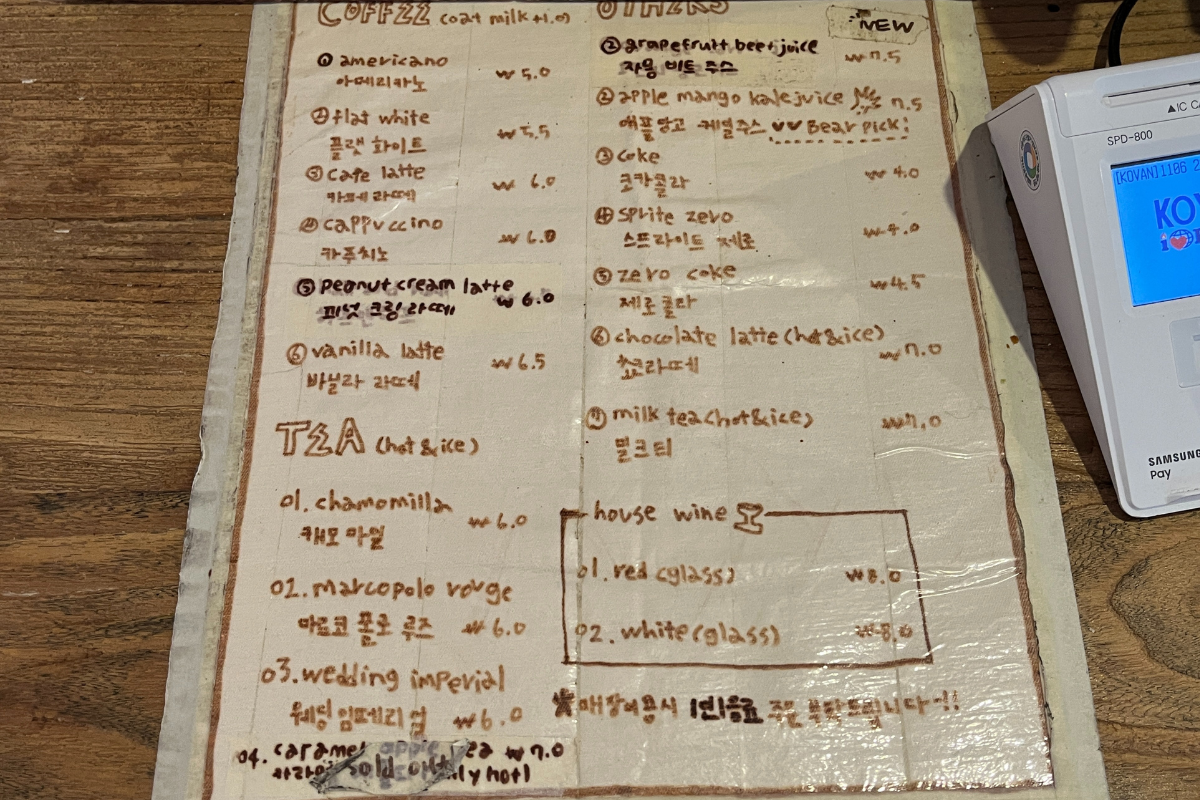 COFFEE (oat milk +1.0)
① americano
아메리카노 ₩ 5.0
② flat white
플랫 화이트 ₩ 5.5
③ cafe latte
카페 라떼 ₩ 6.0
④ cappuccino
카푸치노 ₩ 6.0
⑤ peanut cream latte
피넛 크림 라떼 ₩ 6.0
⑥ vanilla latte
바닐라 라떼 ₩ 6.5
TEA (hot & ice)
01. chamomilla
캐모마일 ₩ 6.0
02. marcopolo rouge
마르코 폴로 루즈 ₩ 6.0
03. wedding imperial
웨딩 임페리얼 ₩ 6.0
04. caramel apple tea ₩ 7.0
sold out
OTHERS
NEW
② grapefruit beet juice
자몽 비트 주스 ₩ 7.5
② apple mango kale juice 7.5
애플망고 케일주스 Bear Pick!
③ coke
코카콜라 ₩ 4.0
④ sprite zero
스프라이트 제로 ₩ 4.0
⑤ zero coke
제로콜라 ₩ 4.5
⑥ chocolate latte (hot & ice)
쵸코라떼 ₩ 7.0
⑦ milk tea (hot & ice)
밀크티 ₩ 7.0
house wine
01. red (glass) ₩ 8.0
02. white (glass) ₩ 8.0
※ 매장이용시 1인1음료 주문 부탁드립니다!
▲IC
SPD-800
[KOVAN]1106 2
SAMSUNG
Pay